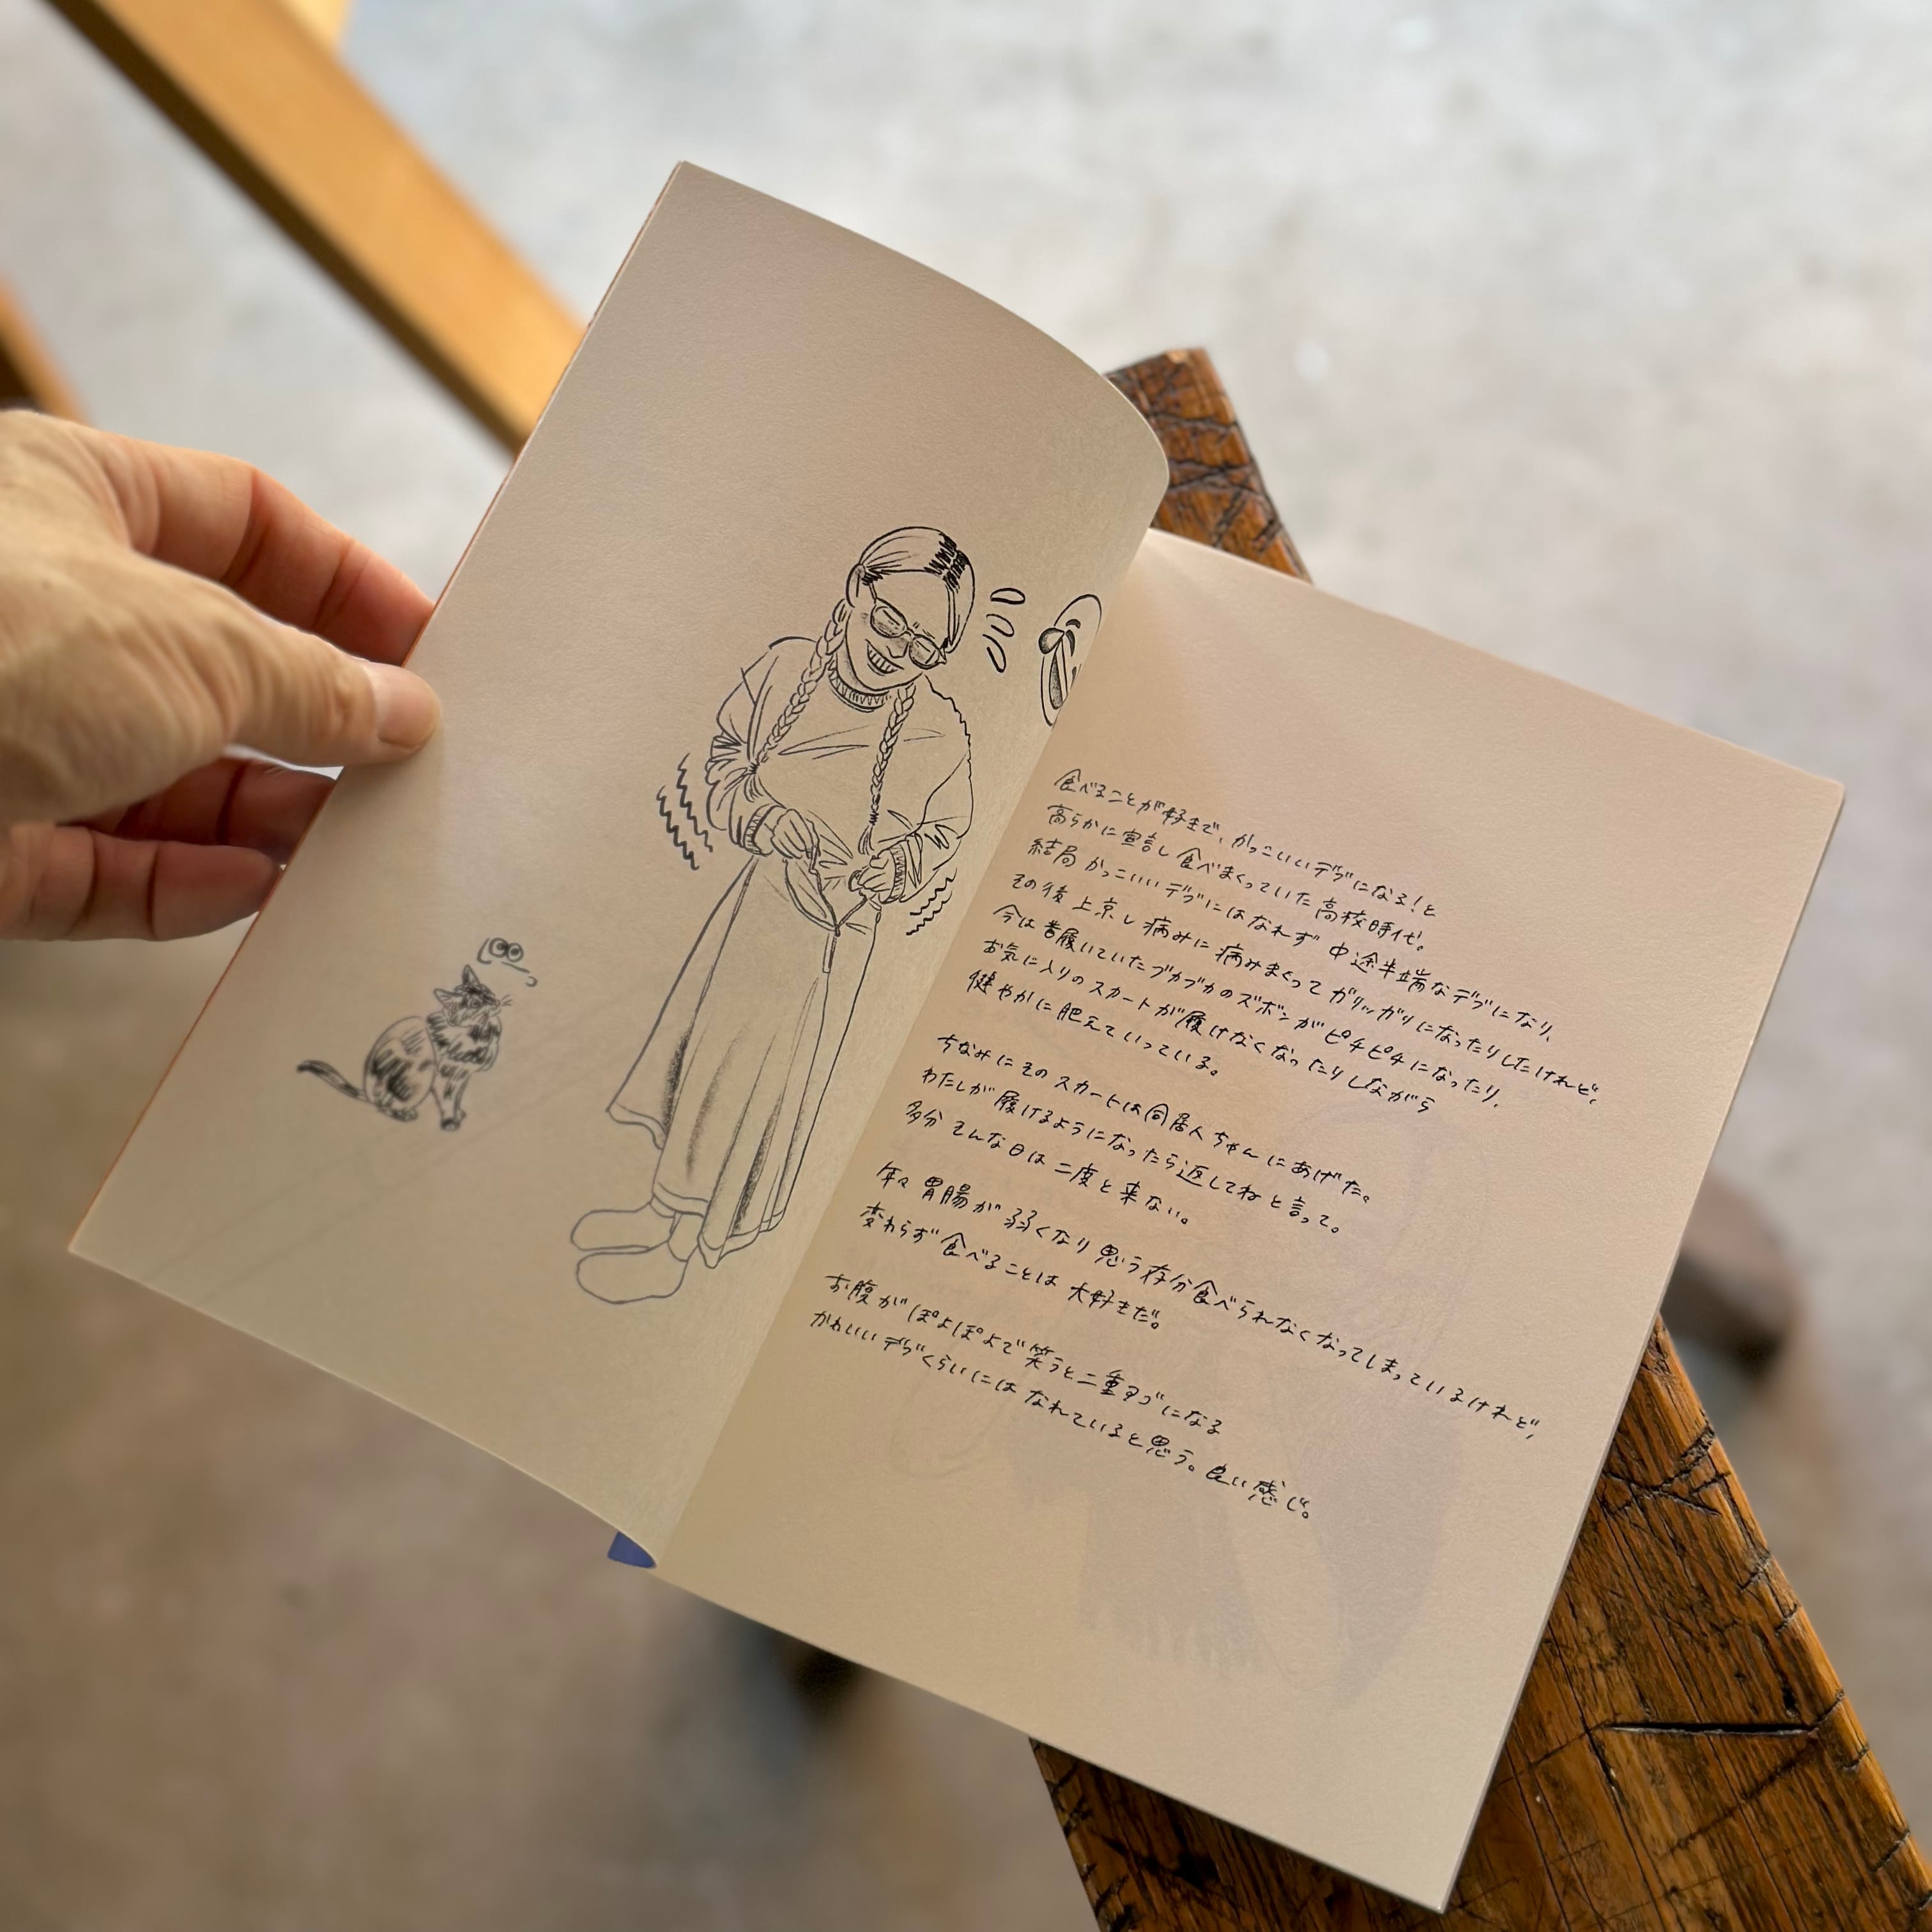 食べることが好きで、かっこいいデブになる！と
高らかに宣言し食べまくっていた高校時代。
結局かっこいいデブにはなれず中途半端なデブになり、
その後上京し病みに病みまくってガリッガリになったりしたけれど、
今は昔履いていたブカブカのズボンがピチピチになったり、
お気に入りのスカートが履けなくなったりしながら
健やかに肥えていっている。
ちなみにそのスカートは同居人ちゃんにあげた。
わたしが履けるようになったら返してねと言って。
多分そんな日は二度と来ない。
年々胃腸が弱くなり思う存分食べられなくなってしまっているけれど、
変わらず食べることは大好きだ。
お腹がぽよぽよで笑うと二重アゴになる
かわいいデブくらいにはなれていると思う。良い感じ。